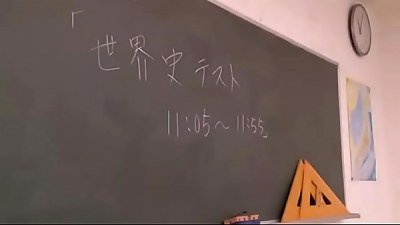 「世界史テスト
11:05～11:55